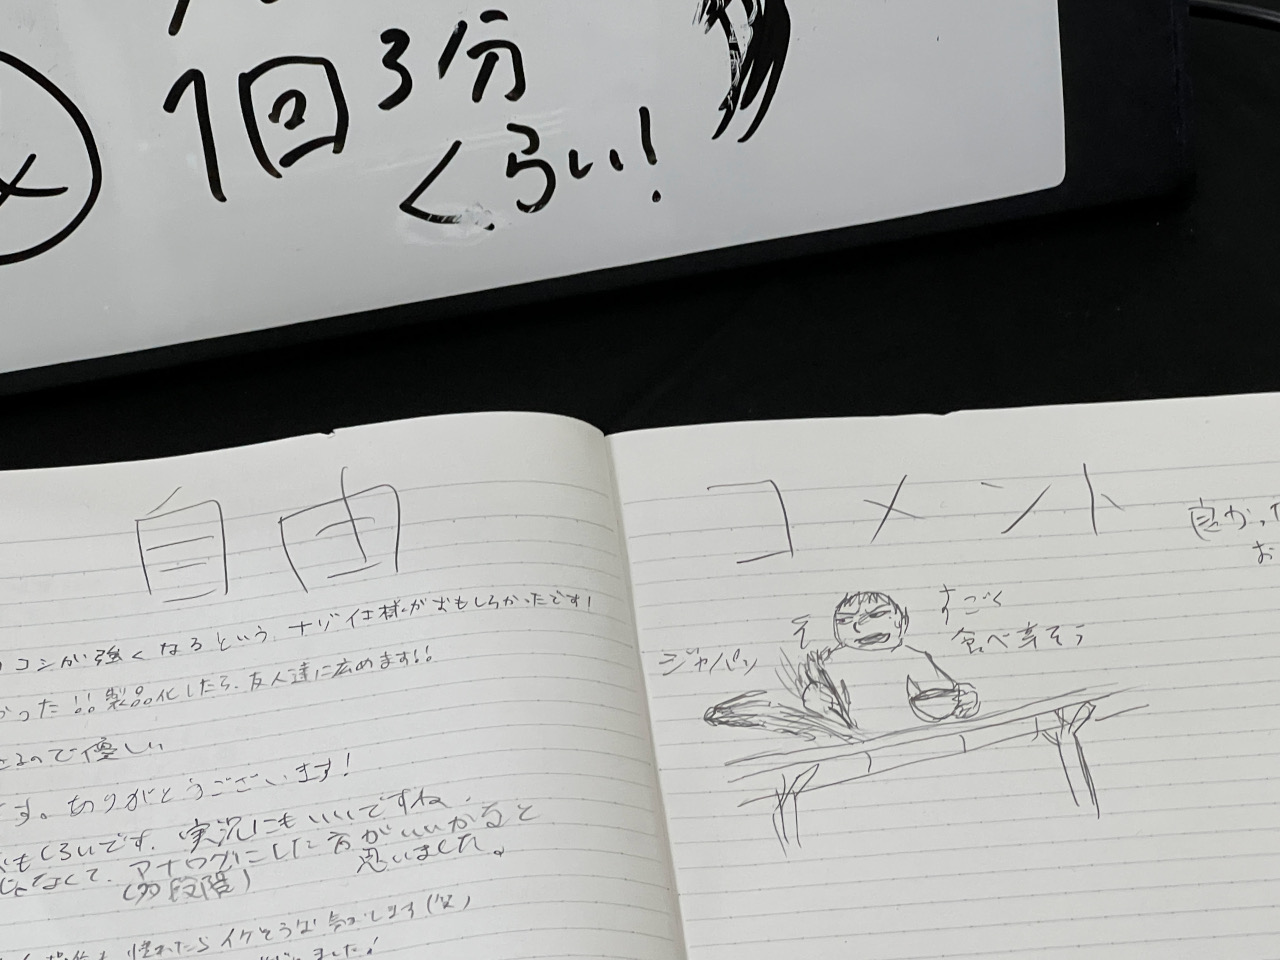 1回3分
くらい!
自由
コシが強くなるという、ナゾ仕様がおもしろかったです!
かった!!製品化したら、友人達に広めます!!
るので優しい
す。ありがとうございます!
もしろいです。実況にもいいですね。
じゃなくて、アナログにした方がいいかなと
(多段階)
思いました。
慣れたらイケそうな気がします(仮)
ました!
コメント
良かった
お
すごく
食べ辛そう
そ
ジャパン